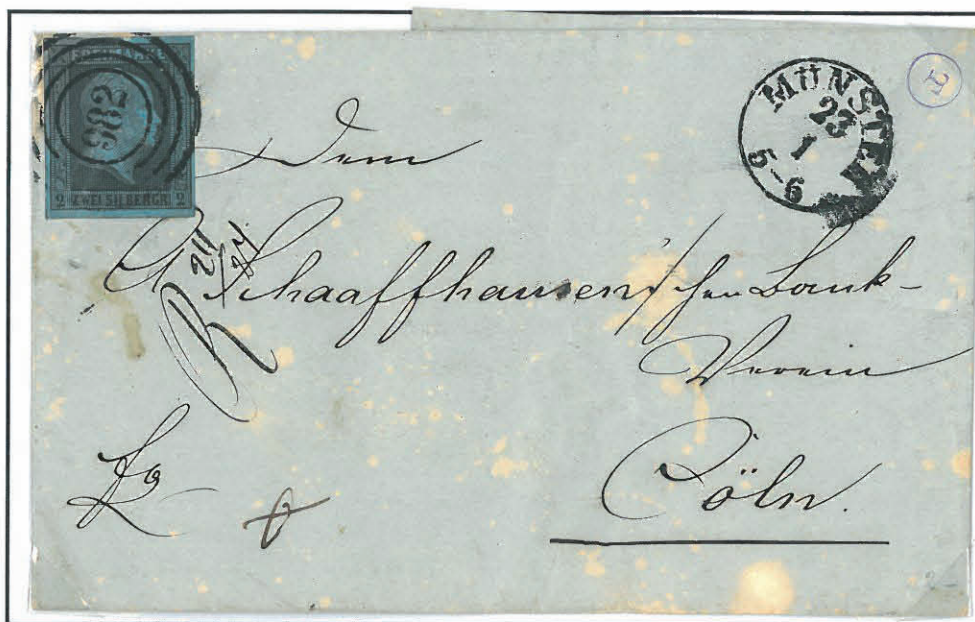 FREIMARKE
982
2 ZWEI SILBERGR. 2
MÜNSTER
23
1
5-6
Dem
A Schaaffhausen'schen Bank-
Verein
Cöln.
R 24/24
fo